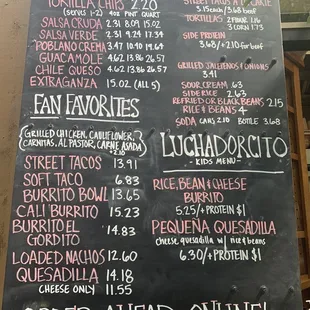 TORTILLA CHIPS 2.20
(SERVES 1-2) 4OZ PINT QUART
SALSA CRUDA 2.31 8.09 15.02
SALSA VERDE 2.31 9.24 17.34
POBLANO CREMA 3.47 10.40 19.64
GUACAMOLE 4.62 13.86 26.57
CHILE GUESO 4.62 13.86 26.57
EXTRAGANZA 15.02 (ALL 5)
FAN FAVORITES
(GRILLED CHICKEN, CAULIFLOWER,
CARNITAS, AL PASTOR, CARNE ASADA
+2.10)
STREET TACOS 13.91
SOFT TACO 6.83
BURRITO BOWL 13.65
CALI BURRITO 15.23
BURRITO EL
GORDITO 14.83
LOADED NACHOS 12.60
QUESADILLA 14.18
CHEESE ONLY 11.55
STREET TACOS A LA CARTE
3.15 each / 3.68 beef
TORTILLAS 2 FLOUR 1.16
3 CORN 1.73
SIDE PROTEIN
3.68/+2.10 for beef
GRILLED JALEPENOS & ONIONS
3.41
SOUR CREAM .63
SIDE RICE 2.63
REFRIED OR BLACK BEANS 2.15
RICE & BEANS 4
SODA CANS 2.10 BOTTLE 3.68
LUCHADORCITO
- KIDS MENU -
RICE, BEAN & CHEESE
BURRITO
5.25/+PROTEIN $1
PEQUEÑA QUESADILLA
cheese quesadilla w/ rice & beans
6.30/+PROTEIN $1
ORDER AHEAD ONLINE!